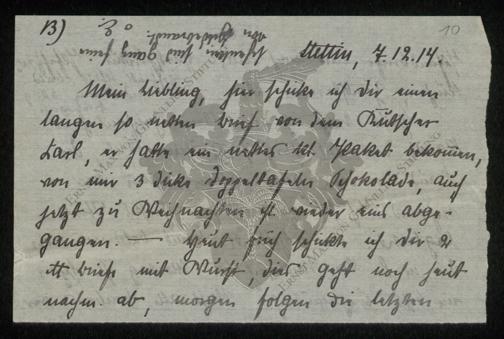 13)
10
sind ganz fein
von Hildebrandt.
Stettin, 7.12.14.
Mein Liebling, hier schicke ich Dir einen
langen so netten Brief von dem Kutscher
Karl, er hatte ein nettes Paket bekommen,
von mir 3 dicke Doppeltafeln Schokolade, auch
jetzt zu Weihnachten ist wieder eins abge-
gangen. — Heut früh schickte ich Dir 2
Briefe mit Wurst dies geht noch heut
nachm. ab, morgen folgen die letzten